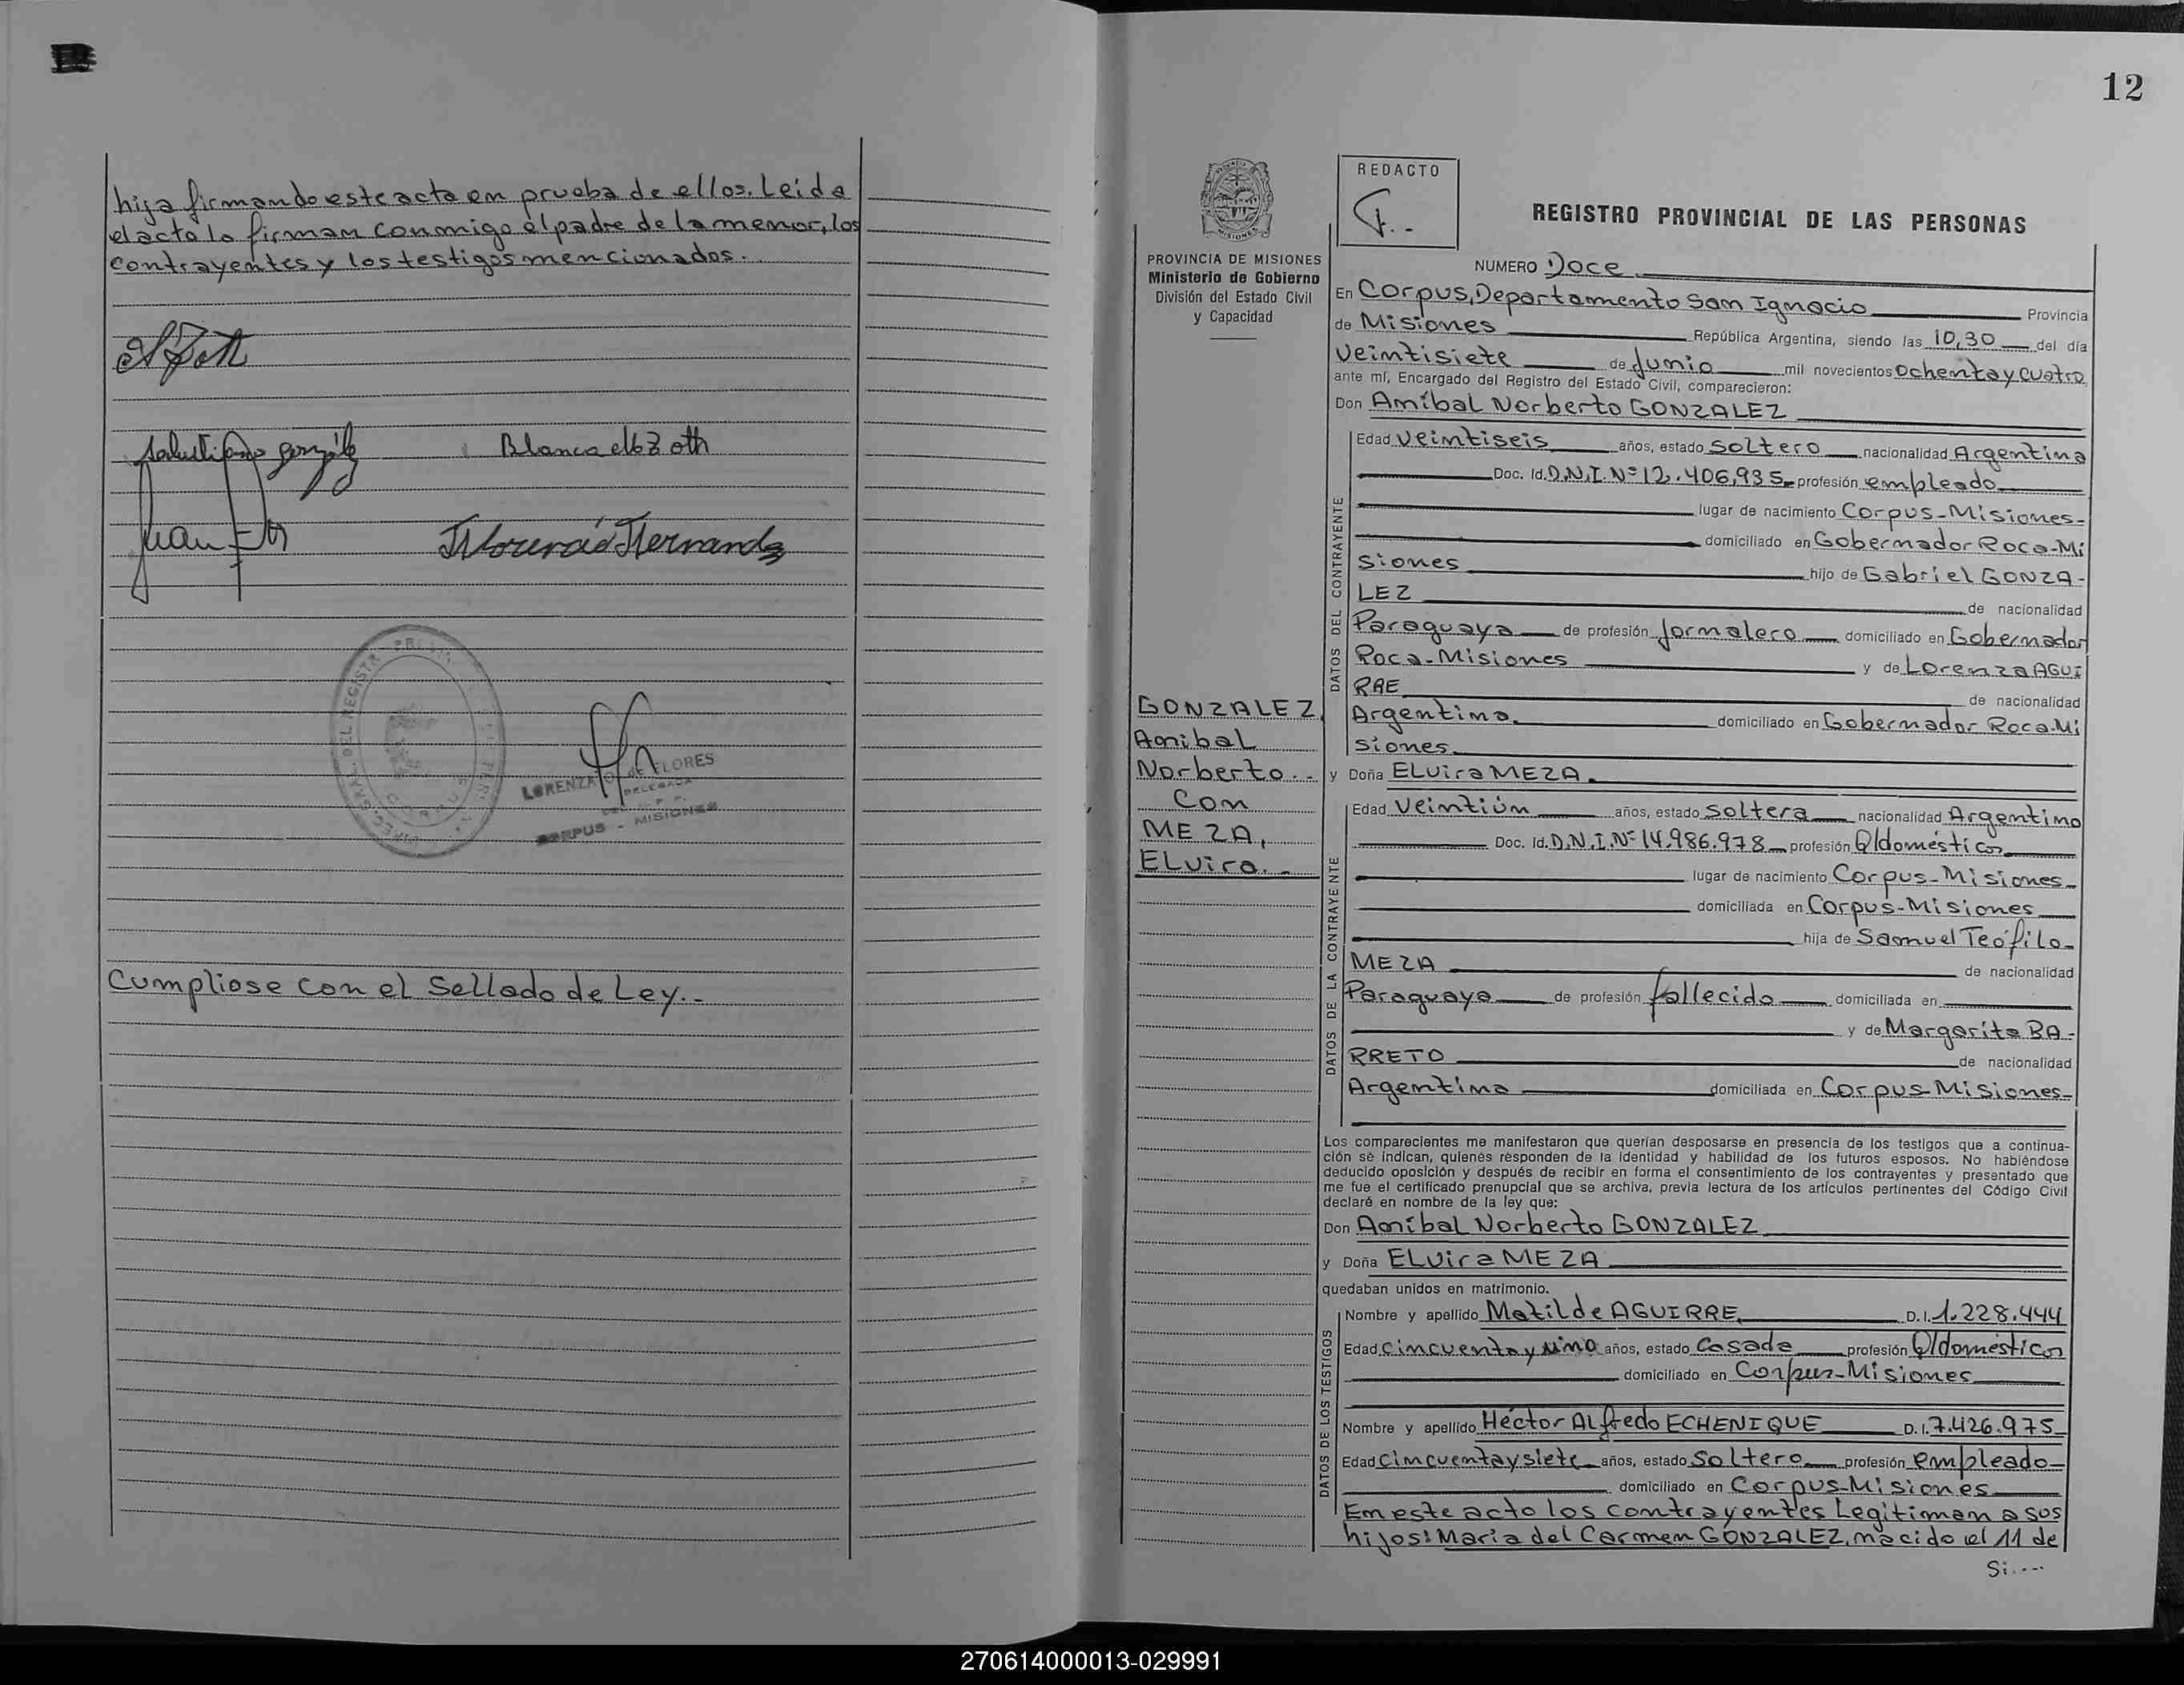 hija firmando este acta en prueba de ellos. Leida
el acta la firman conmigo el padre de la menor, los
contrayentes y los testigos mencionados.
Blanca Zoth
Juan
Florencio Hernandz
LORENZA O. de FLORES
DELEGADA
CORPUS - MISIONES
Cumpliose con el Sellado de Ley.-
12
PROVINCIA DE MISIONES
Ministerio de Gobierno
División del Estado Civil
y Capacidad
GONZALEZ,
Anibal
Norberto.-
Con
MEZA,
ELvira.-
REDACTO
REGISTRO PROVINCIAL DE LAS PERSONAS
NUMERO Doce
En Corpus, Departamento San Ignacio Provincia
de Misiones República Argentina, siendo las 10,30 del día
veintisiete de Junio mil novecientos Ochenta y cuatro
ante mí, Encargado del Registro del Estado Civil, comparecieron:
Don Aníbal Norberto GONZALEZ
DATOS DEL CONTRAYENTE
Edad veintiseis años, estado Soltero nacionalidad Argentina
Doc. Id. D.N.I. Nº 12.406.935 profesión empleado
lugar de nacimiento Corpus-Misiones-
domiciliado en Gobernador Roca-Mi
siones hijo de Gabriel GONZA-
LEZ de nacionalidad
Paraguaya de profesión Jornalero domiciliado en Gobernador
Roca-Misiones y de Lorenza AGUI
RRE de nacionalidad
Argentina domiciliado en Gobernador Roca-Mi
siones.
y Doña ELvira MEZA.
DATOS DE LA CONTRAYENTE
Edad Veintiún años, estado Soltera nacionalidad Argentina
Doc. Id. D.N.I. Nº 14.986.978 profesión Q/domésticos
lugar de nacimiento Corpus-Misiones-
domiciliada en Corpus-Misiones
hija de Samuel Teófilo
MEZA de nacionalidad
Paraguaya de profesión fallecido domiciliada en
y de Margarita BA-
RRETO de nacionalidad
Argentina domiciliada en Corpus-Misiones-
Los comparecientes me manifestaron que querían desposarse en presencia de los testigos que a continua-
ción se indican, quienes responden de la identidad y habilidad de los futuros esposos. No habiéndose
deducido oposición y después de recibir en forma el consentimiento de los contrayentes y presentado que
me fue el certificado prenupcial que se archiva, previa lectura de los artículos pertinentes del Código Civil
declaré en nombre de la ley que:
Don Aníbal Norberto GONZALEZ
y Doña ELvira MEZA
quedaban unidos en matrimonio.
DATOS DE LOS TESTIGOS
Nombre y apellido Matilde AGUIRRE D.I. 1.228.444
Edad cincuenta y uno años, estado Casada profesión Q/domésticos
domiciliado en Corpus-Misiones
Nombre y apellido Héctor ALfredo ECHENIQUE D.I. 7.426.975
Edad cincuenta y siete años, estado Soltero profesión empleado
domiciliado en Corpus-Misiones
En este acto los contrayentes Legitiman a sus
hijos: Maria del Carmen GONZALEZ, nacido el 11 de
Si....
270614000013-029991